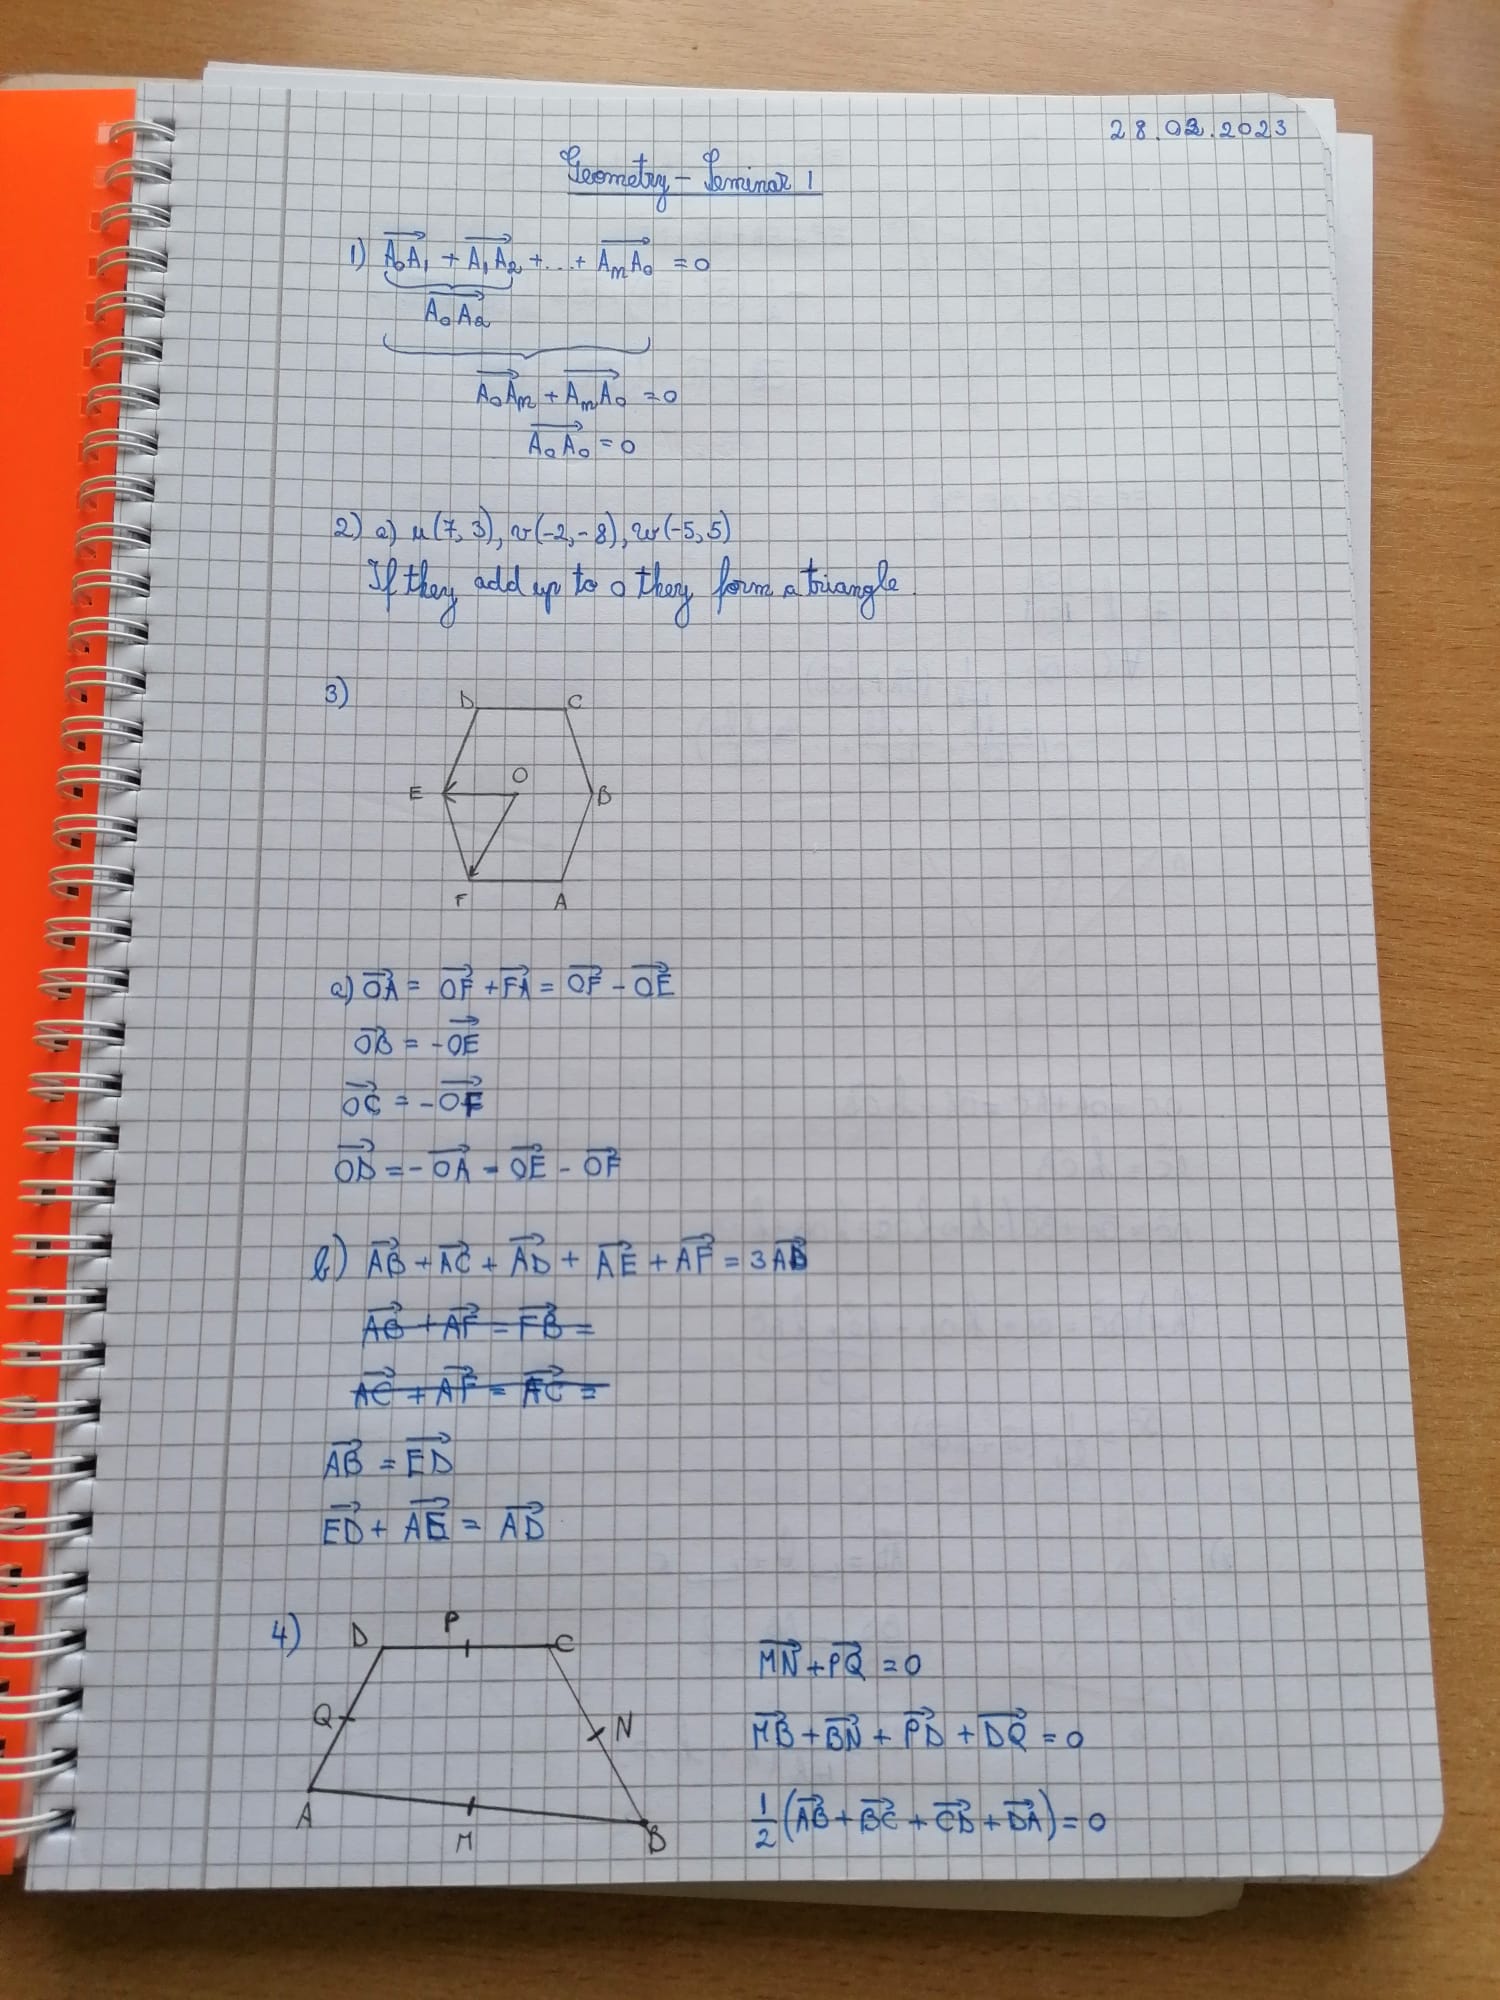 28.02.2023
Geometry - Seminar 1
1) A₀A₁ + A₁A₂ + ... + AₙA₀ = 0
A₀A₂
A₀Aₙ + AₙA₀ = 0
A₀A₀ = 0
2) a) u(7, 3), v(-2, -8), w(-5, 5)
If they add up to 0 they form a triangle.
3)
D C
O
E B
F A
a) OA = OF + FA = OF - OE
OB = -OE
OC = -OF
OD = -OA = OE - OF
b) AB + AC + AD + AE + AF = 3AD
AB + AF = FB =
AC + AF = FC =
AB = ED
ED + AE = AD
4) D P C
MN + PQ = 0
Q N
MB + BN + PD + DQ = 0
A M B
1/2 (AB + BC + CD + DA) = 0